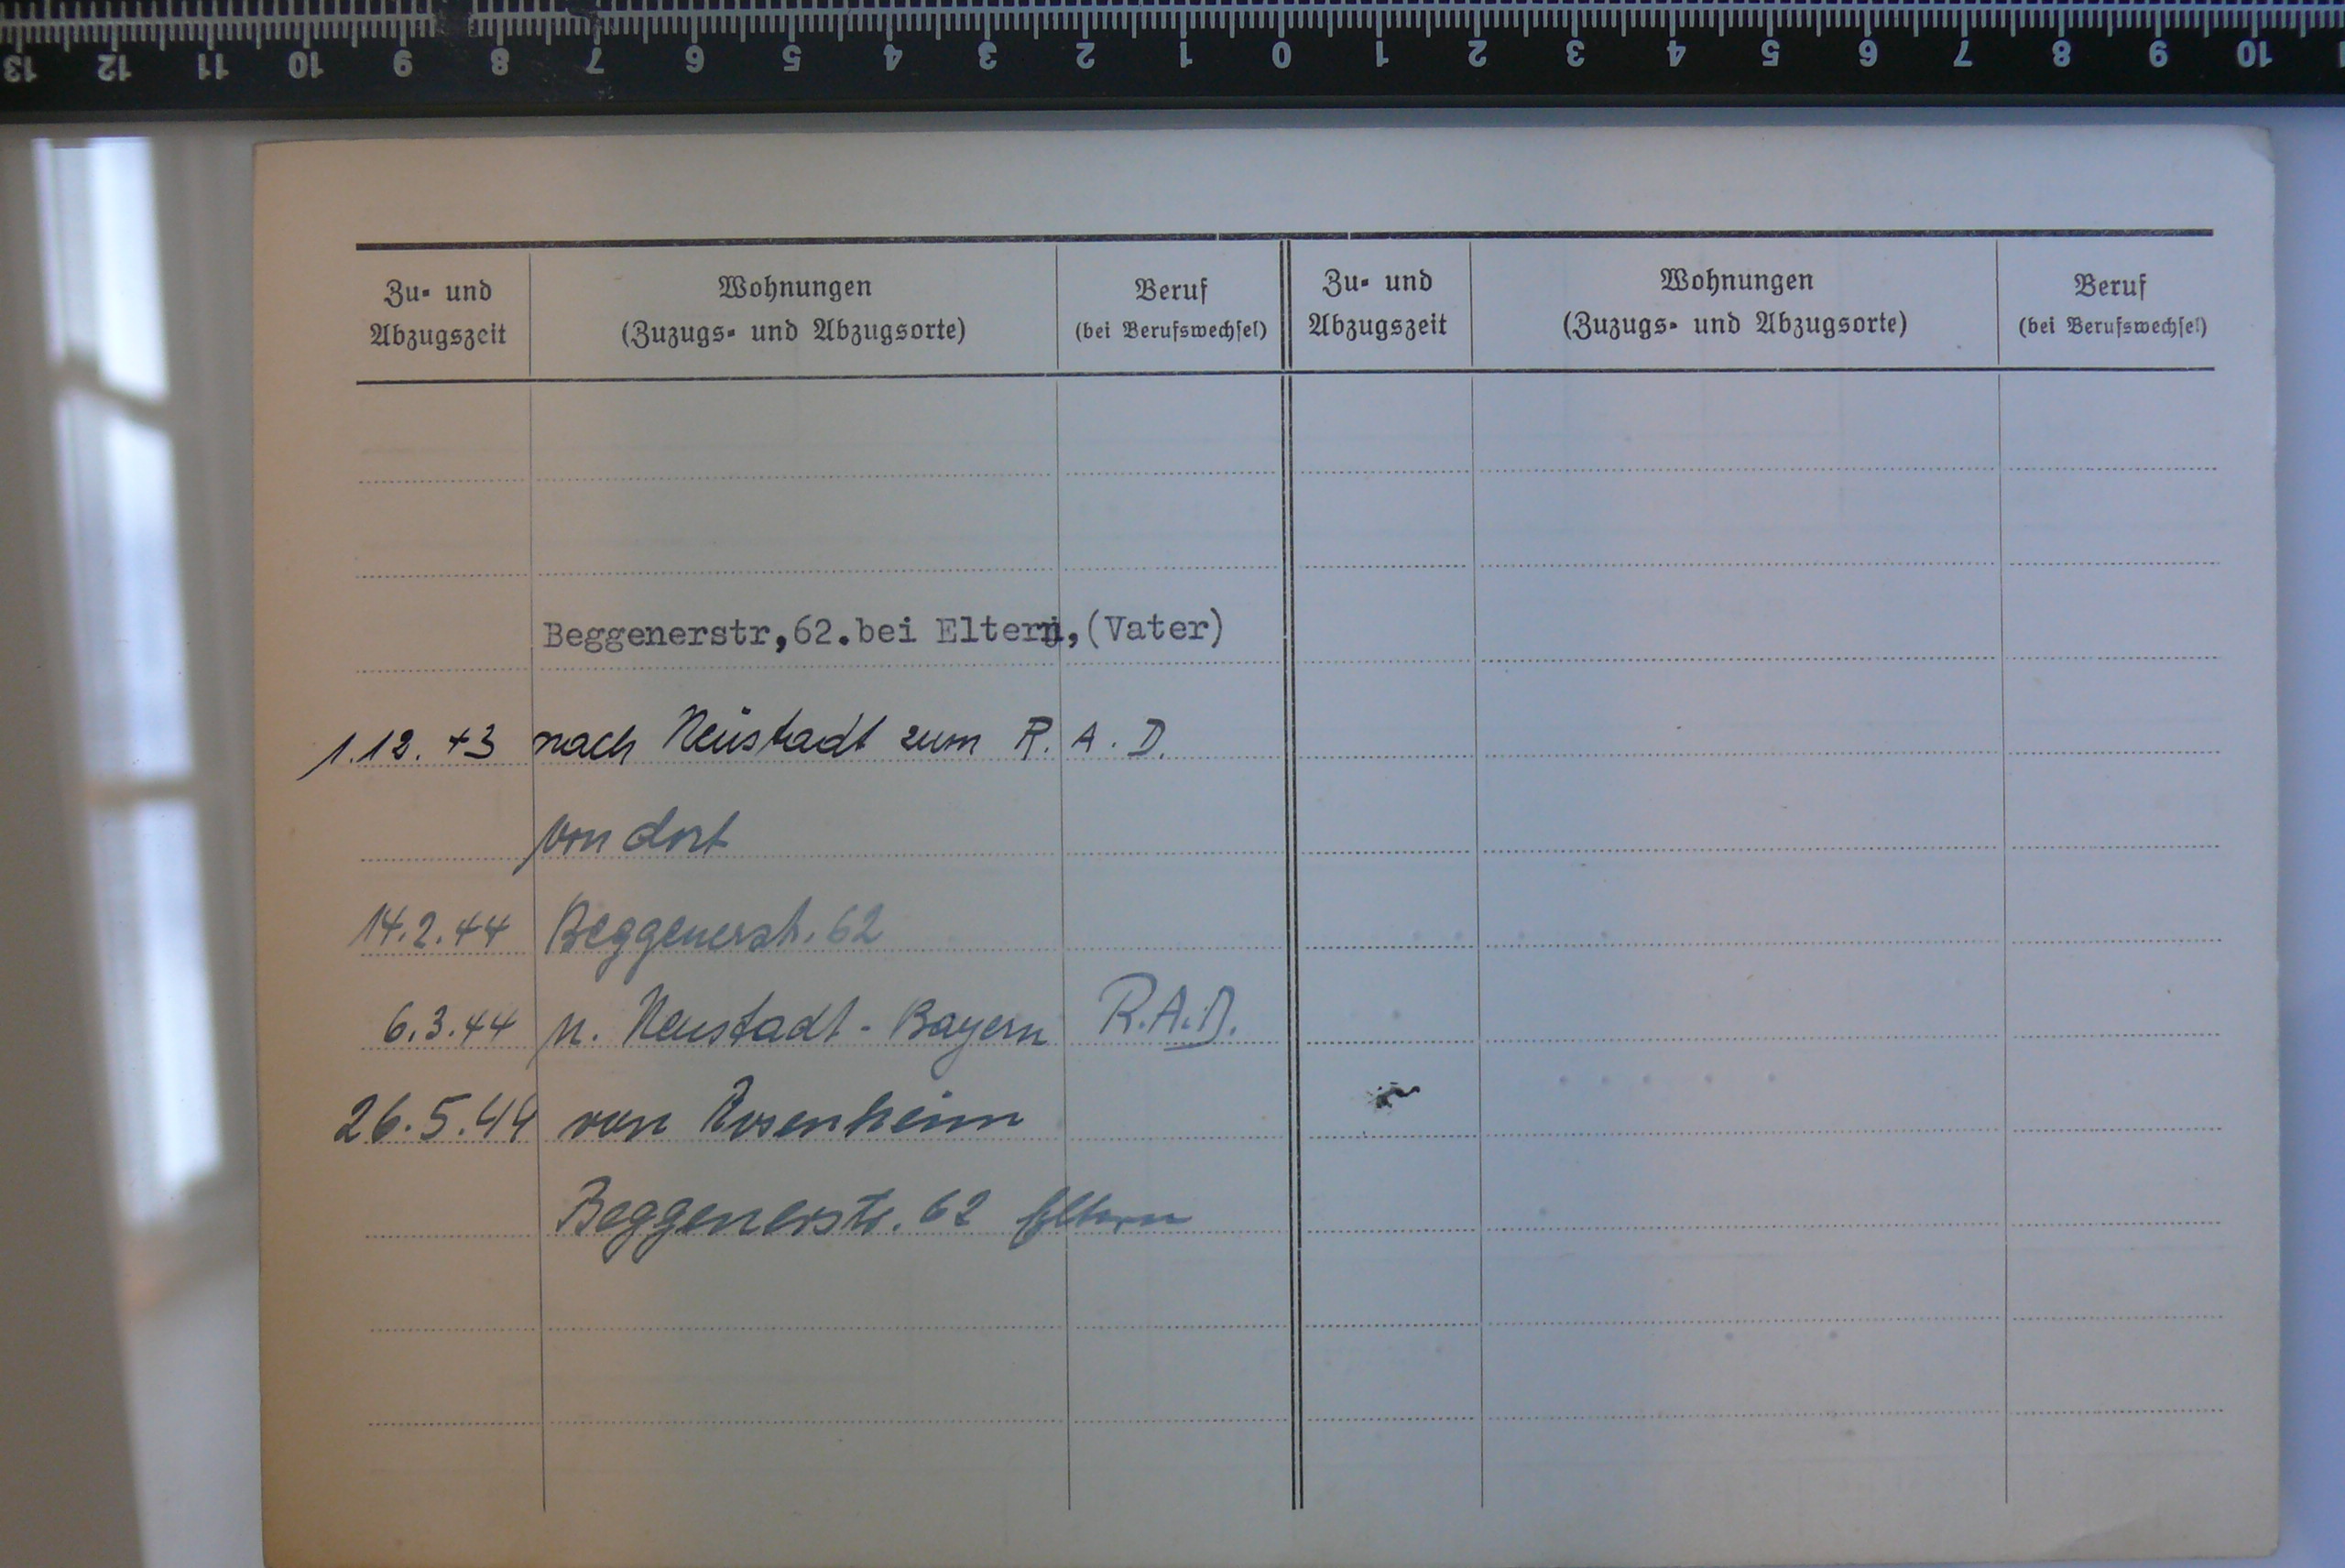 13 12 11 10 9 8 7 6 5 4 3 2 1 0 1 2 3 4 5 6 7 8 9 10
Zu- und Abzugszeit Wohnungen (Zuzugs- und Abzugsorte) Beruf (bei Berufswechsel) Zu- und Abzugszeit Wohnungen (Zuzugs- und Abzugsorte) Beruf (bei Berufswechsel)
Beggenerstr,62.bei Eltern,(Vater)
1.12.43 nach Neustadt zum R.A.D.
von dort
14.2.44 Beggenerstr. 62
6.3.44 n. Neustadt - Bayern R.A.D.
26.5.44 von Rosenheim
Beggenerstr. 62 Eltern